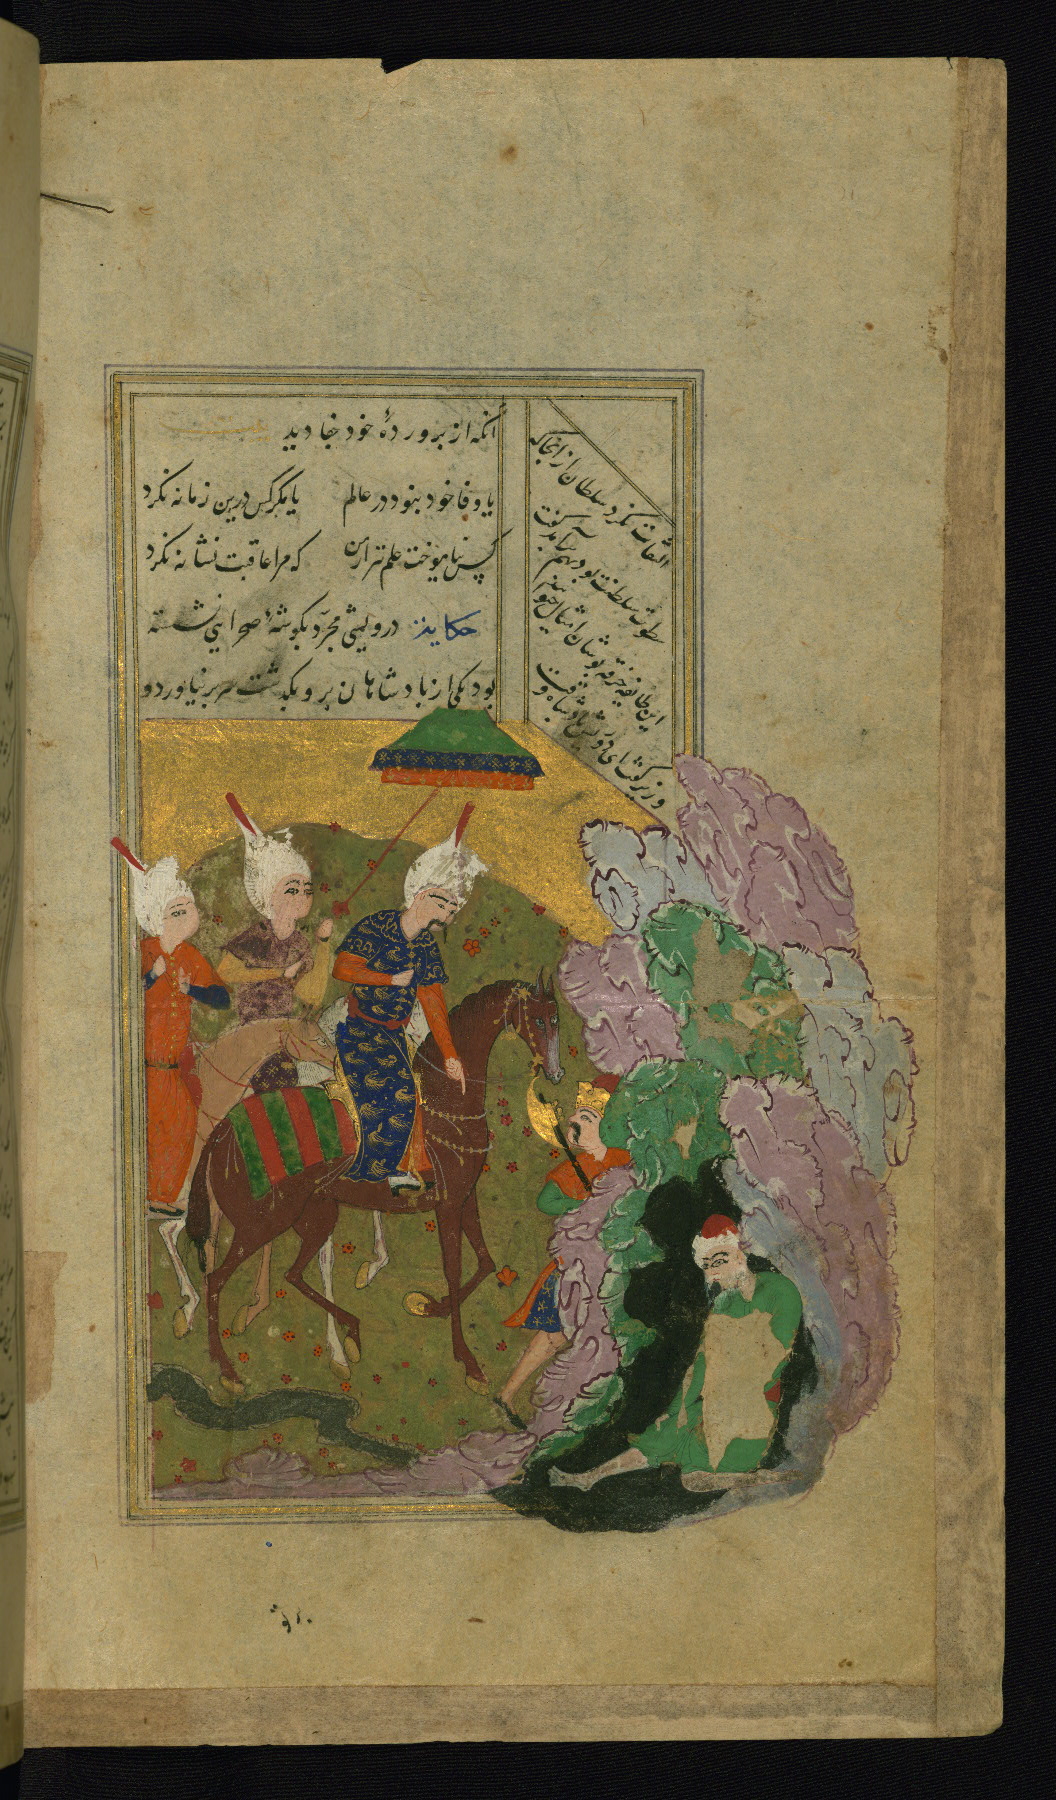 آنکه از پرورده خود جفا دید بیت
یا وفا خود نبود در عالم یا مگر کس درین زمانه نکرد
کس نیاموخت علم تیر از من که مرا عاقبت نشانه نکرد
حکایت درویشی مجرد بکوشه صحرایی نشسته
بود یکی از پادشاهان برو بگذشت سر برنیاورد و
التفات نکرد سلطان از انجا که
سطوت سلطنت بود بهم برآمد گفت
این طایفه خرقه پوشان امثال حیوانند
وزیر گفت ای درویش پادشاه وقت